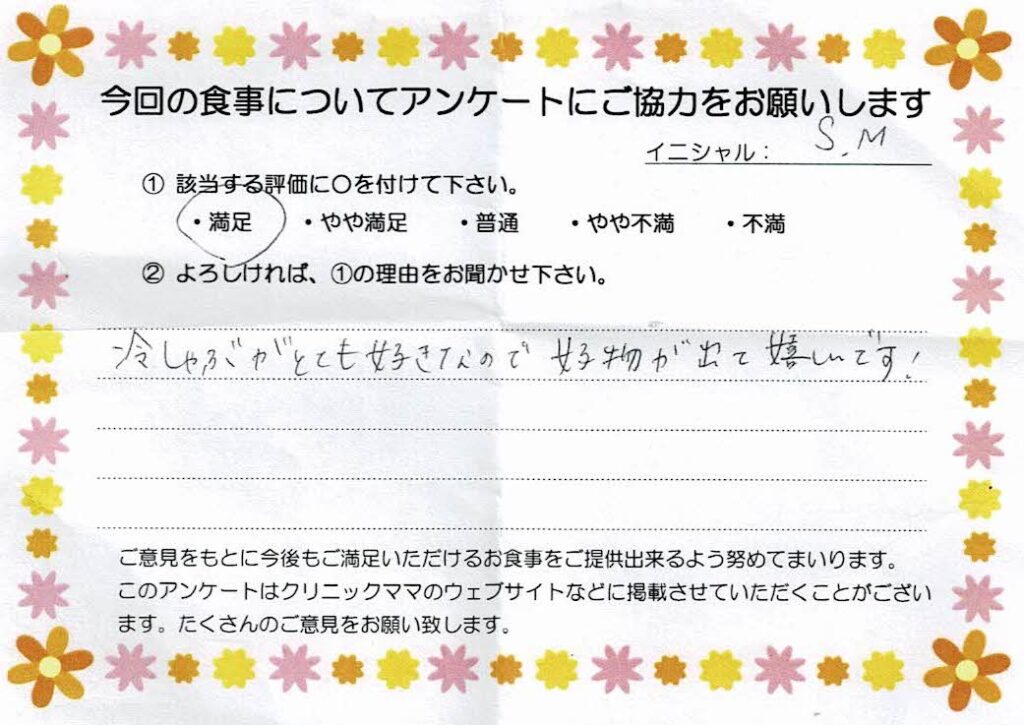 今回の食事についてアンケートにご協力をお願いします
イニシャル： S.M
① 該当する評価に〇を付けて下さい。
・満足 ・やや満足 ・普通 ・やや不満 ・不満
② よろしければ、①の理由をお聞かせ下さい。
冷しゃぶがとても好きなので好物が出て嬉しいです！
ご意見をもとに今後もご満足いただけるお食事をご提供出来るよう努めてまいります。
このアンケートはクリニックママのウェブサイトなどに掲載させていただくことがござい
ます。たくさんのご意見をお願い致します。